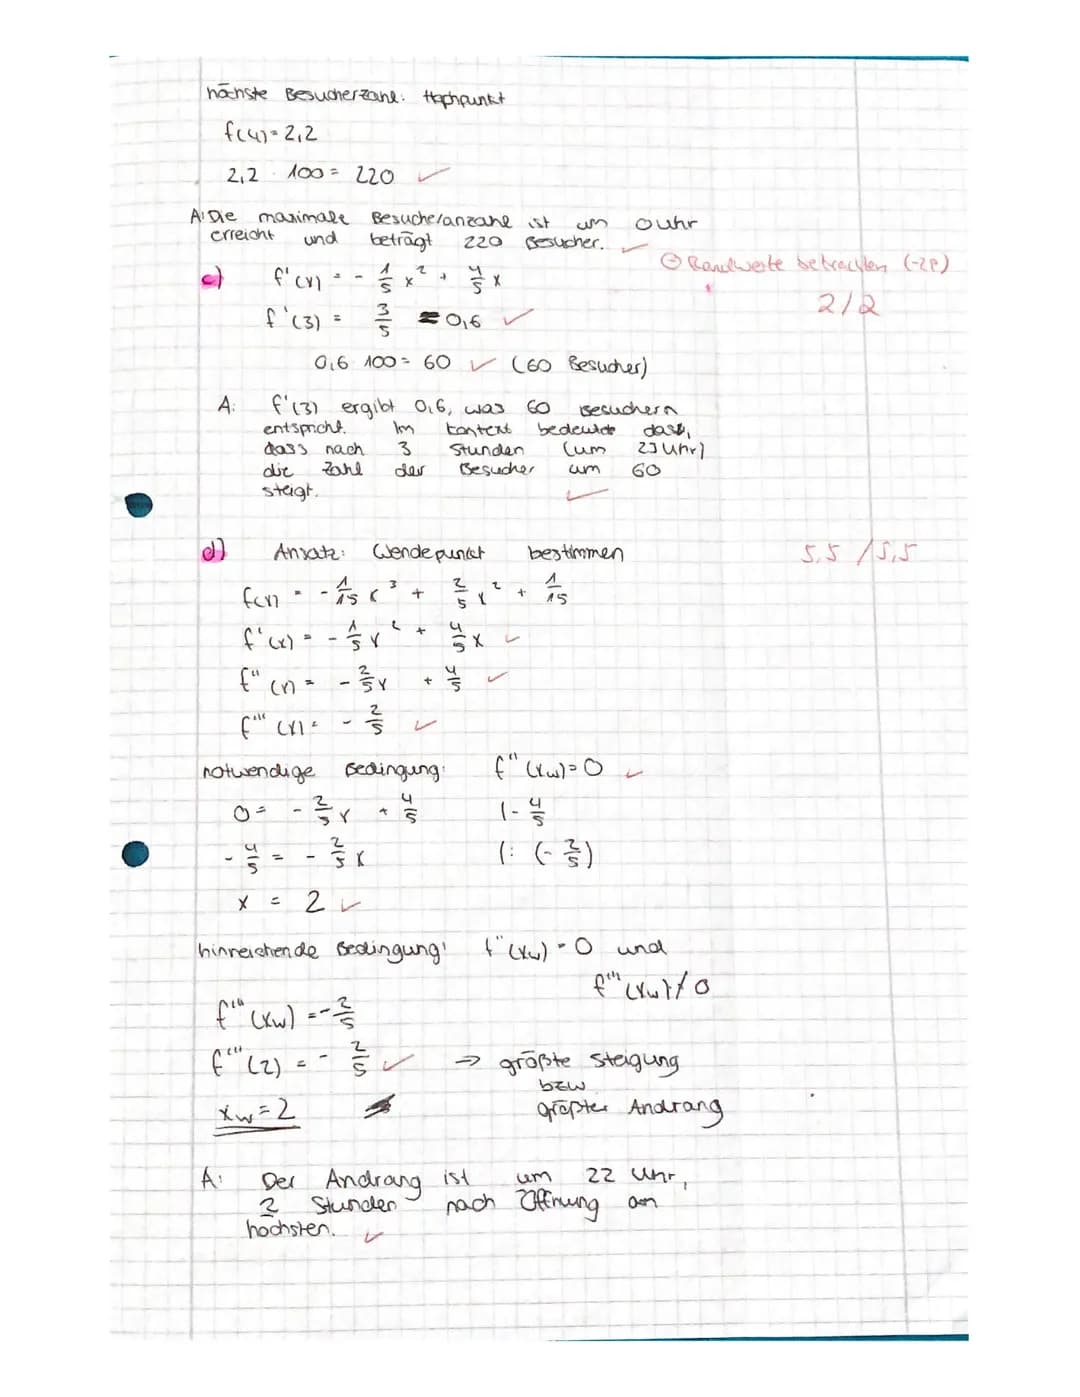 höchste Besucherzahl: Hochpunkt
f(4) = 2,2
2,2 · 100 = 220 ✓
A: Die maximale Besucheranzahl ist um 0 Uhr
erreicht und beträgt 220 Besucher. ✓
⊖ Randwerte betrachten (-2P)
2/2
c) f'(x) = - 1/5 x² + 4/5 x
f'(3) = 3/5 = 0,6 ✓
0,6 · 100 = 60 ✓ (60 Besucher)
A: f'(3) ergibt 0,6, was 60 Besuchern
entspricht. Im Kontext bedeutet dass,
dass nach 3 Stunden (um 23 Uhr)
die Zahl der Besucher um 60
steigt. ✓
d) Ansatz: Wendepunkt bestimmen 5,5 / 5,5
f(x) = - 1/15 x³ + 2/5 x² + 1/15
f'(x) = - 1/5 x² + 4/5 x ✓
f''(x) = - 2/5 x + 4/5 ✓
f'''(x) = - 2/5 ✓
notwendige Bedingung: f''(xw) = 0 ✓
0 = - 2/5 x + 4/5 | - 4/5
- 4/5 = - 2/5 x | : (- 2/5)
x = 2 ✓
hinreichende Bedingung: f''(xw) = 0 und
f'''(xw) ≠ 0
f'''(xw) = - 2/5
f'''(2) = - 2/5 ✓ ⇒ größte Steigung
bzw
xw = 2 größter Andrang
A: Der Andrang ist um 22 Uhr,
2 Stunden nach Öffnung am
höchsten. ✓